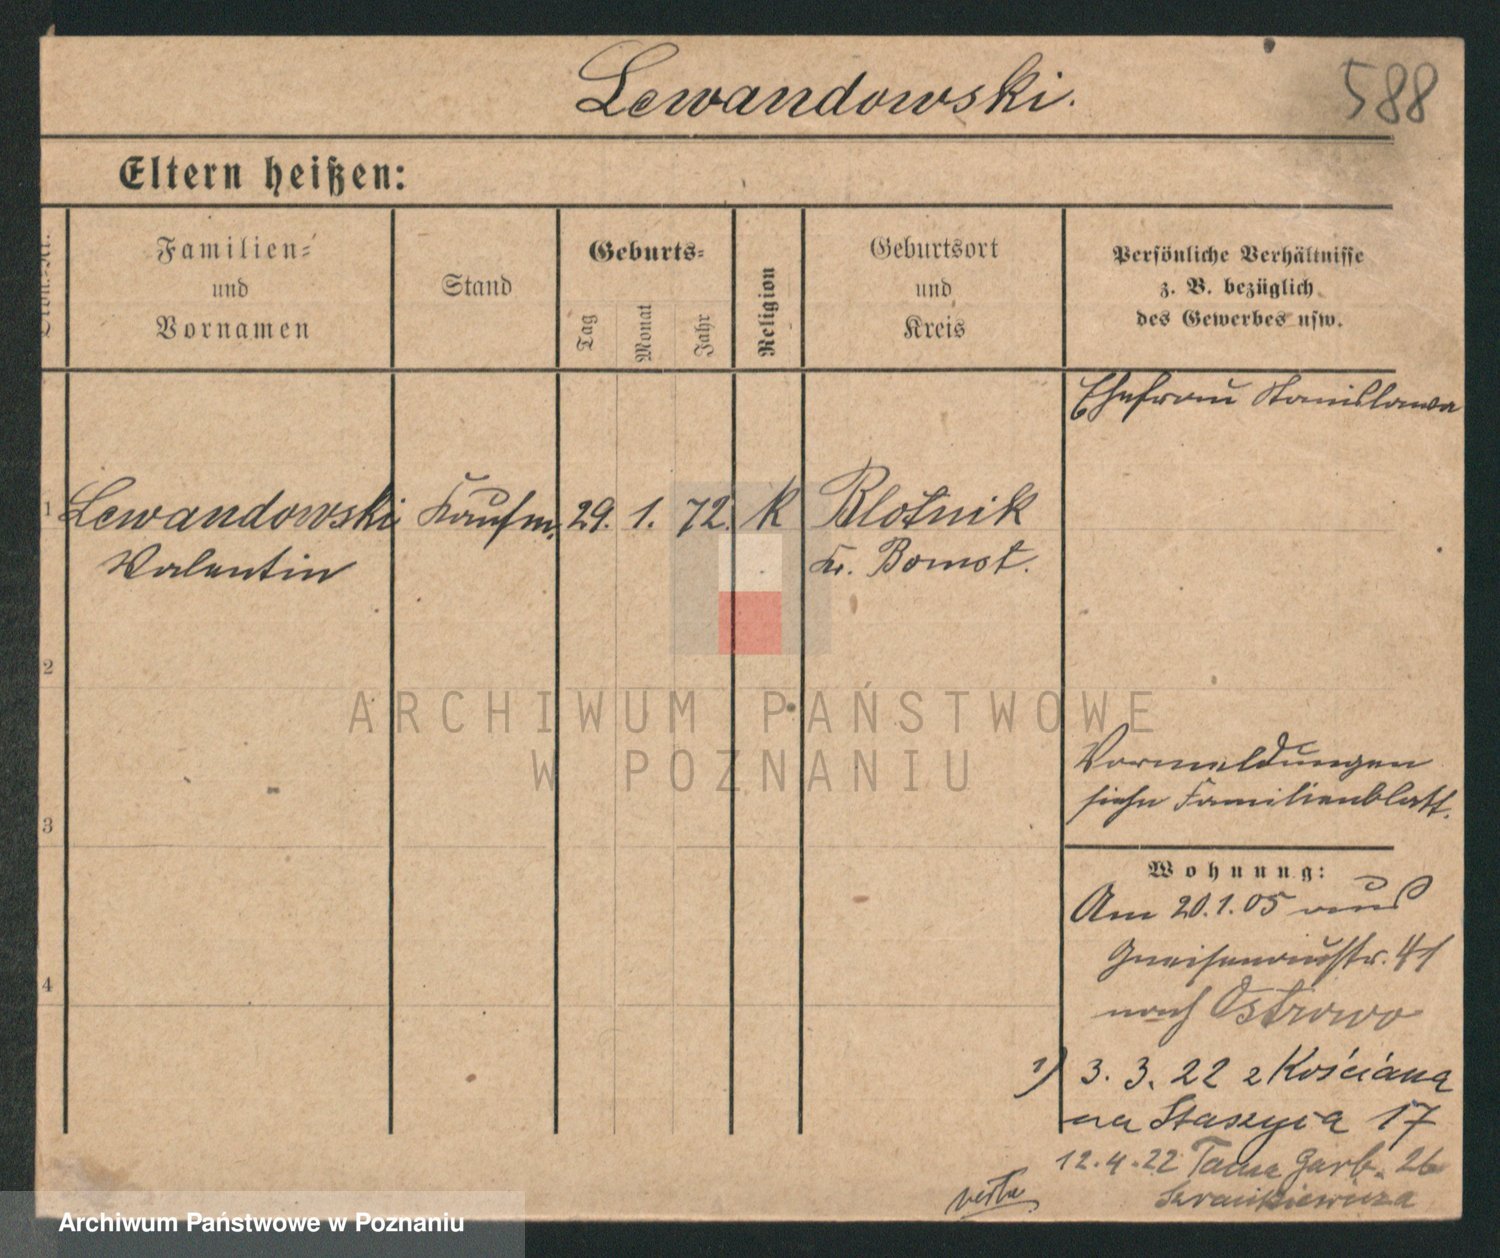 Lewandowski.
588
Eltern heißen:
Ordn.-Nr.
Familien-
und
Vornamen
Stand
Geburts-
Tag
Monat
Jahr
Religion
Geburtsort
und
Kreis
Persönliche Verhältnisse
z. B. bezüglich
des Gewerbes usw.
Ehefrau Stanislawa
1 Lewandowski Kaufm. 29. 1. 72. K Blotnik
Valentin Kr. Bomst.
2
ARCHIWUM PAŃSTWOWE
W POZNANIU
Vormeldungen
siehe Familienblatt.
3
Wohnung:
Am 20.1.05 aus
Gneisenaustr. 41
4
nach Ostrowo
1) 3. 3. 22 z Kościana
na Staszyca 17
12.4.22 Tama Garb. 26
verte
Archiwum Państwowe w Poznaniu